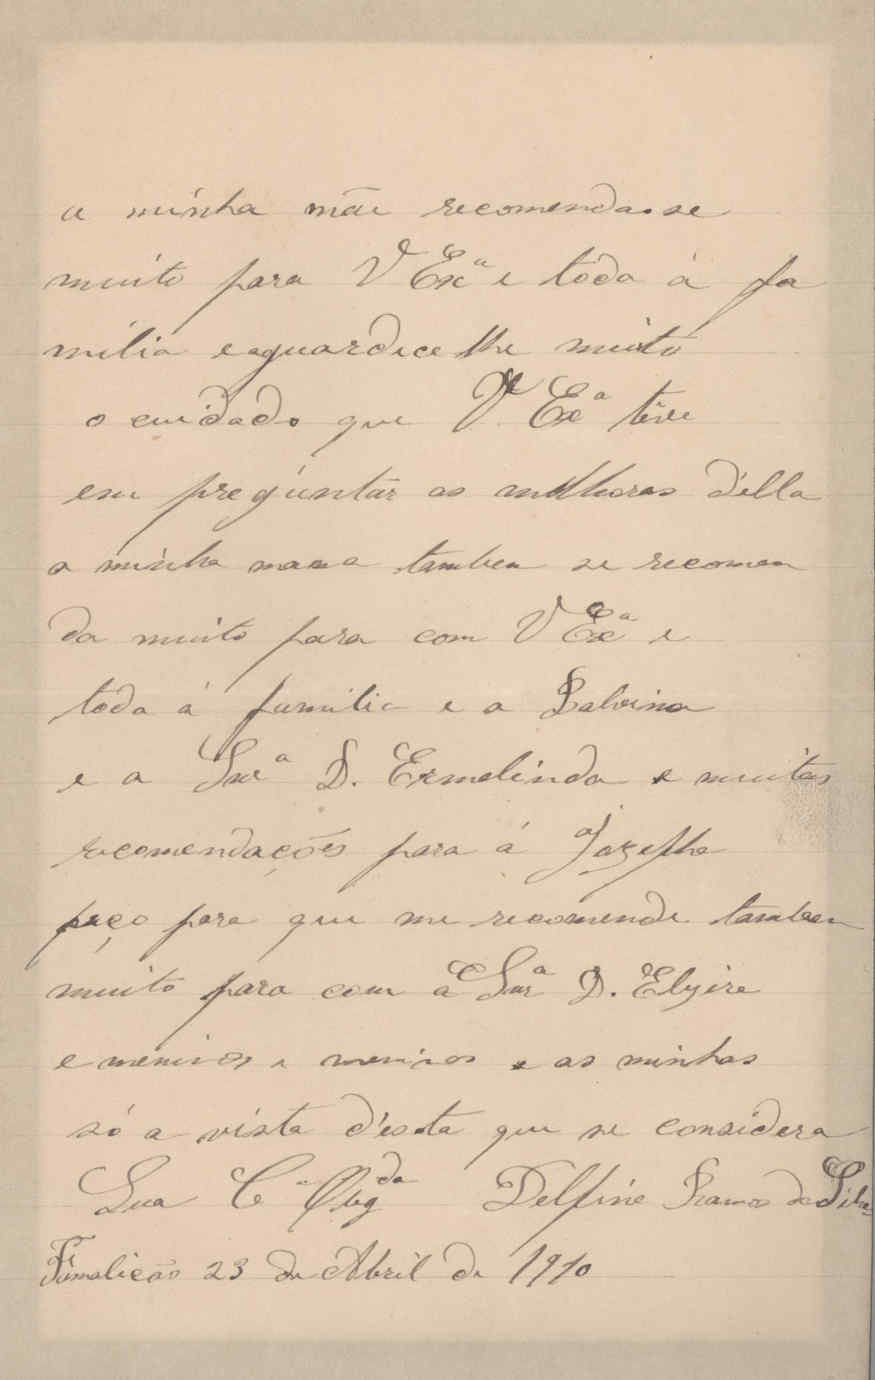 a minha mãe recomenda-se
muito para V Exª e tôda á fa
milia e aguardece lhe muito
o cuidado que V. Exª teve
em preguntar as milhoras d'ella
a minha mana tambem se recomen
da muito para com V Exª e
toda á familia e a Balvina
e a Snrª D. Ermelinda e muitas
recomendações para á Jozepha
peço para que me recomende tambem
muito para com a Snrª D. Elzira
e meninos e meninas e as minhas
só a vista d'esta que se considera
Sua Cª Obgda Delfina Ramos da Silva
Famalicão 23 de Abril de 1910